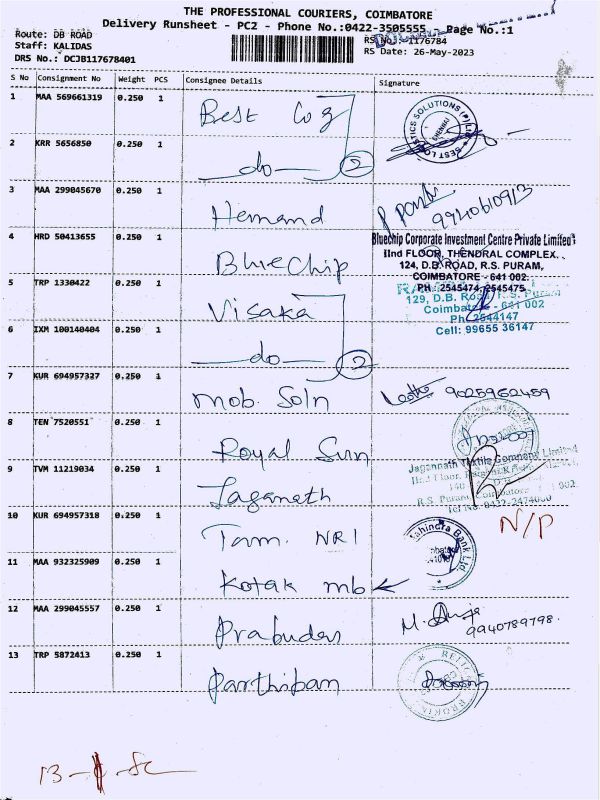 THE PROFESSIONAL COURIERS, COIMBATORE
Delivery Runsheet - PC2 - Phone No.:0422-3505555 - Page No.:1
Route: DB ROAD
Staff: KALIDAS
DRS No.: DCJB117678401
RS No.: 1176784
RS Date: 26-May-2023
S No Consignment No Weight PCS Consignee Details Signature
1 MAA 569661319 0.250 1 Best Log
BEST LOGISTICS SOLUTIONS (P) Ltd CHENNAI
2 KRR 5656850 0.250 1 —do— 2
3 MAA 299045670 0.250 1 Hemand
9940610913
4 HRD 50413655 0.250 1 Bluechip
Bluechip Corporate Investment Centre Private Limited
IInd FLOOR, THENDRAL COMPLEX.
124, D.B. ROAD, R.S. PURAM,
COIMBATORE - 641 002.
PH : 2545474, 2545475
5 TRP 1330422 0.250 1 Visaka
129, D.B. Road, R.S. Puram
Coimbatore - 641 002
Ph: 2544147
Cell: 99655 36147
6 IXM 100140404 0.250 1 —do— 2
7 KUR 694957327 0.250 1 Mob. Soln
9025962459
8 TEN 7520551 0.250 1 Royal Sun
9 TVM 11219034 0.250 1 Jaganath
Jagannath Textile Company Limited
R.S. Puram, Coimbatore 002
Tel No. 0422-2474000
10 KUR 694957318 0.250 1 Tam. NRI
N/P
11 MAA 932325909 0.250 1 Kotak mb
Mahindra Bank Ltd
12 MAA 299045557 0.250 1 Prabudev
9940789798
13 TRP 5872413 0.250 1 Parthipan